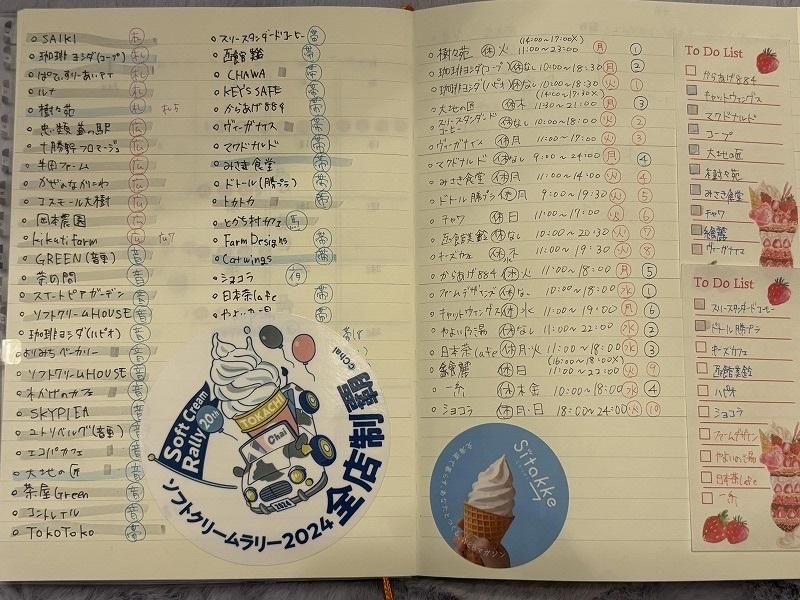 SAIKI 札
珈琲ヨシダ(コープ) 札
ぱてぃすりーあいりす 札
ルナ 札
樹々苑 札 札5
道の駅 広
十勝野フロマージュ 広
半田ファーム 広
かぜのなかのこわ 広
コスモール大樹 広
岡本農園 広
kikuti farm 広 広7
GREEN(音更) 音
茶の間 音
スイートピアガーデン 音
ソフトクリームHOUSE 音
珈琲ヨシダ(ハピオ) 音
よりみちベーカリー 音
ソフトクリームHOUSE 音
カフェ 音
SKYPIEA 音
ユトリベルグ(音更) 音
エコパカフェ 音
大地の匠 音
茶屋Green 音
コントレイル 音
TOKOTOKO 音
スリースタンダードコーヒー 帯
函館 帯
CHAWA 帯
KEY'S CAFE 帯
からあげ884 帯
ヴィーガナイス 帯
マクドナルド 帯
みさき食堂 帯
ドトール(勝プラ) 帯
トカトカ 帯
とかち村カフェ
Farm Designs 帯
Catwings 帯
ショコラ
日本茶cafe 帯
やよい乃湯 帯
Soft Cream Rally 20th
TOKACHI
Chai
2024
©Chai
ソフトクリームラリー2024全店制覇
(14:00~17:00X)
樹々苑 休火 11:00~23:00 月 1
珈琲ヨシダ(コープ) 休なし 10:00~18:30 月 2
珈琲ヨシダ(ハピオ) 休なし 10:00~18:30 火 1
(14:00~17:00X)
大地の匠 休木 11:30~21:00 月 3
スリースタンダードコーヒー 休なし 10:00~18:00 火 2
ヴィーガナイス 休月 11:00~17:00 火 3
マクドナルド 休なし 9:00~24:00 月 4
みさき食堂 休月 11:00~14:00 火 4
ドトール勝プラ 休月 9:00~19:30 火 5
チャワ 休日 11:00~17:00 火 6
函館美鈴 休なし 10:00~20:30 火 7
キーズカフェ 11:00~19:30 火 8
からあげ884 休火 11:00~18:00 月 5
ファームデザインズ 休なし 10:00~18:00 水 1
キャットウィングス 休水 11:00~19:00 月 6
やよい乃湯 休なし 11:00~22:00 水 2
日本茶cafe 休月・火 11:00~18:00 水 3
(16:00~18:00X)
休日 11:00~22:00 火 9
一糸 休木金 10:00~18:00 水 4
ショコラ 休月・日 18:00~24:00 火 10
Sitakke
To Do List
からあげ884
キャットウィングス
マクドナルド
コープ
大地の匠
樹々苑
みさき食堂
チャワ
ヴィーガナイス
To Do List
スリースタンダードコーヒー
ドトール勝プラ
キーズカフェ
函館美鈴
ハピオ
ショコラ
ファームデザイン
やよい乃湯
日本茶cafe
一糸